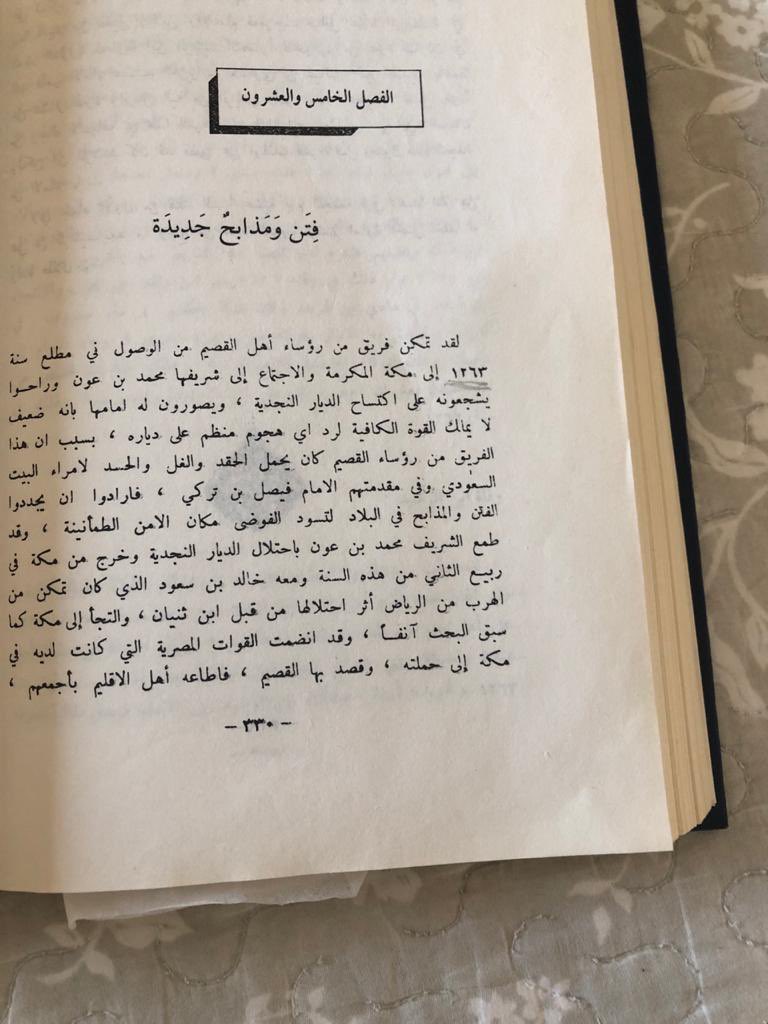 الفصل الخامس والعشرون
فِتَن وَمَذابحٌ جَدِيدَة
لقد تمكن فريق من رؤساء أهل القصيم من الوصول في مطلع سنة
١٢٦٣ إلى مكة المكرمة والاجتماع إلى شريفها محمد بن عون وراحوا
يشجعونه على اكتساح الديار النجدية ، ويصورون له امامها بانه ضعيف
لا يملك القوة الكافية لرد اي هجوم منظم على دياره ، بسبب ان هذا
الفريق من رؤساء القصيم كان يحمل الحقد والغل والحسد لامراء البيت
السعودي وفي مقدمتهم الامام فيصل بن تركي ، فارادوا ان يجددوا
الفتن والمذابح في البلاد لتسود الفوضى مكان الامن الطمأنينة ، وقد
طمع الشريف محمد بن عون باحتلال الديار النجدية وخرج من مكة في
ربيع الثاني من هذه السنة ومعه خالد بن سعود الذي كان تمكن من
الهرب من الرياض أثر احتلالها من قبل ابن ثنيان ، والتجأ إلى مكة كما
سبق البحث آنفـاً ، وقد انضمت القوات المصرية التي كانت لديه في
مكة إلى حملته ، وقصد بها القصيم ، فاطاعه أهل الاقليم بأجمعهم ،
– ٣٣٠ –